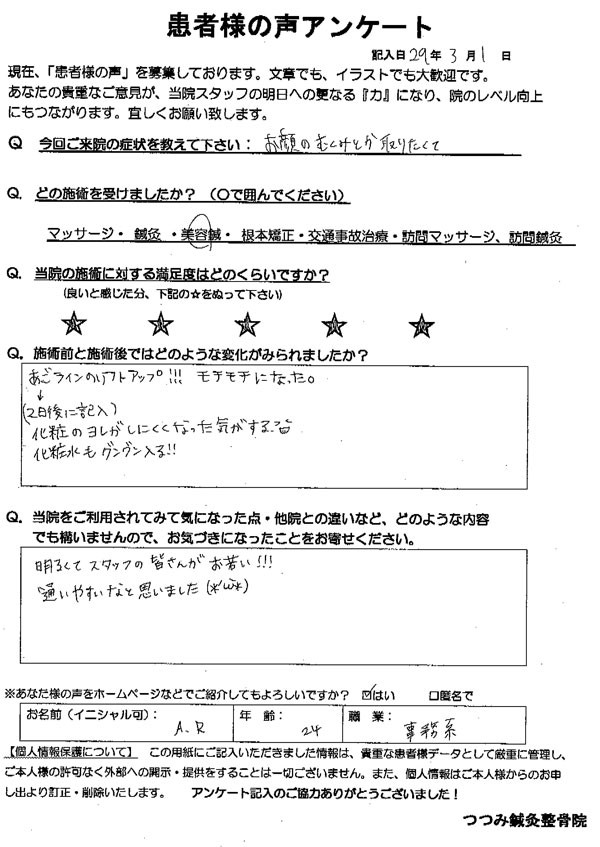 患者様の声アンケート
記入日29年 3月 1日
現在、「患者様の声」を募集しております。文章でも、イラストでも大歓迎です。
あなたの貴重なご意見が、当院スタッフの明日への更なる『力』になり、院のレベル向上
にもつながります。宜しくお願い致します。
Q 今回ご来院の症状を教えて下さい：お顔のむくみとか取りたくて
Q. どの施術を受けましたか？（〇で囲んでください）
マッサージ・ 鍼灸 ・美容鍼・ 根本矯正・交通事故治療・訪問マッサージ、訪問鍼灸
Q. 当院の施術に対する満足度はどのくらいですか？
(良いと感じた分、下記の☆をぬって下さい)
★ ★ ★ ★ ★
Q. 施術前と施術後ではどのような変化がみられましたか？
あごラインのリフトアップ!!! モチモチになった。
↓
(2日後に記入)
化粧のヨレがしにくくなった気がする
化粧水もグングン入る!!
Q. 当院をご利用されてみて気になった点・他院との違いなど、どのような内容
でも構いませんので、お気づきになったことをお寄せください。
明るくてスタッフの皆さんがお若い!!!
通いやすいなと思いました(*'ω'*)
※あなた様の声をホームページなどでご紹介してもよろしいですか？ ☑はい □匿名で
お名前（イニシャル可）： A.R 年 齢： 24 職 業： 事務系
【個人情報保護について】 この用紙にご記入いただきました情報は、貴重な患者様データとして厳重に管理し、
ご本人様の許可なく外部への開示・提供をすることは一切ございません。また、個人情報はご本人様からのお申
し出より訂正・削除いたします。 アンケート記入のご協力ありがとうございました！
つつみ鍼灸整骨院